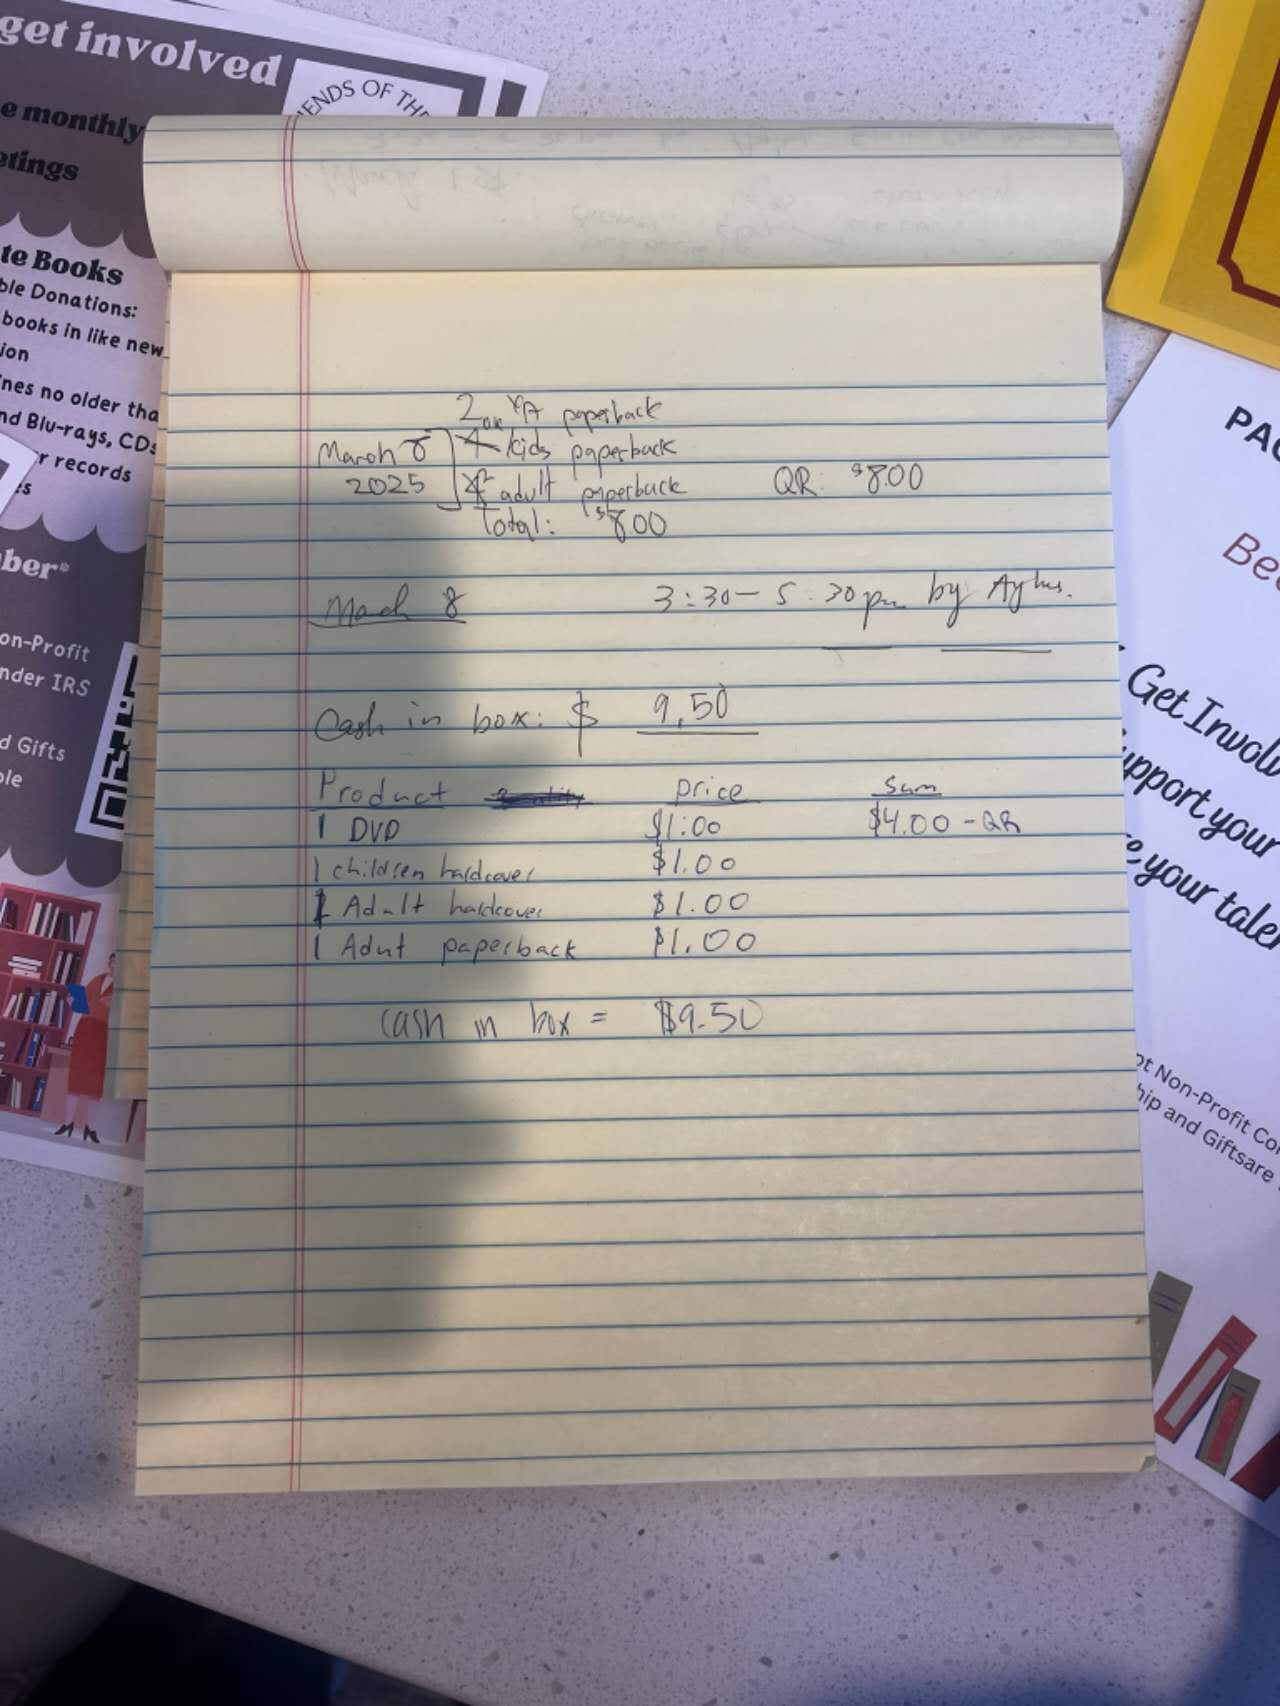 get involved
e monthly
etings
ENDS OF THE
te Books
ble Donations:
books in like new
ion
nes no older tha
nd Blu-rays, CDs
r records
es
ber*
on-Profit
nder IRS
d Gifts
ble
2 YA paperback
March 8 kids paperback
2025 adult paperback QR: $8.00
Total: $8.00
March 8 3:30 - 5:30 pm by
Cash in box: $ 9.50
Product price Sum
1 DVD $1.00 $4.00 - QR
1 children hardcover $1.00
1 Adult hardcover $1.00
1 Adult paperback $1.00
cash in box = $9.50
PAC
Bec
Get Involv
upport your
e your talen
pt Non-Profit Cor
hip and Giftsare